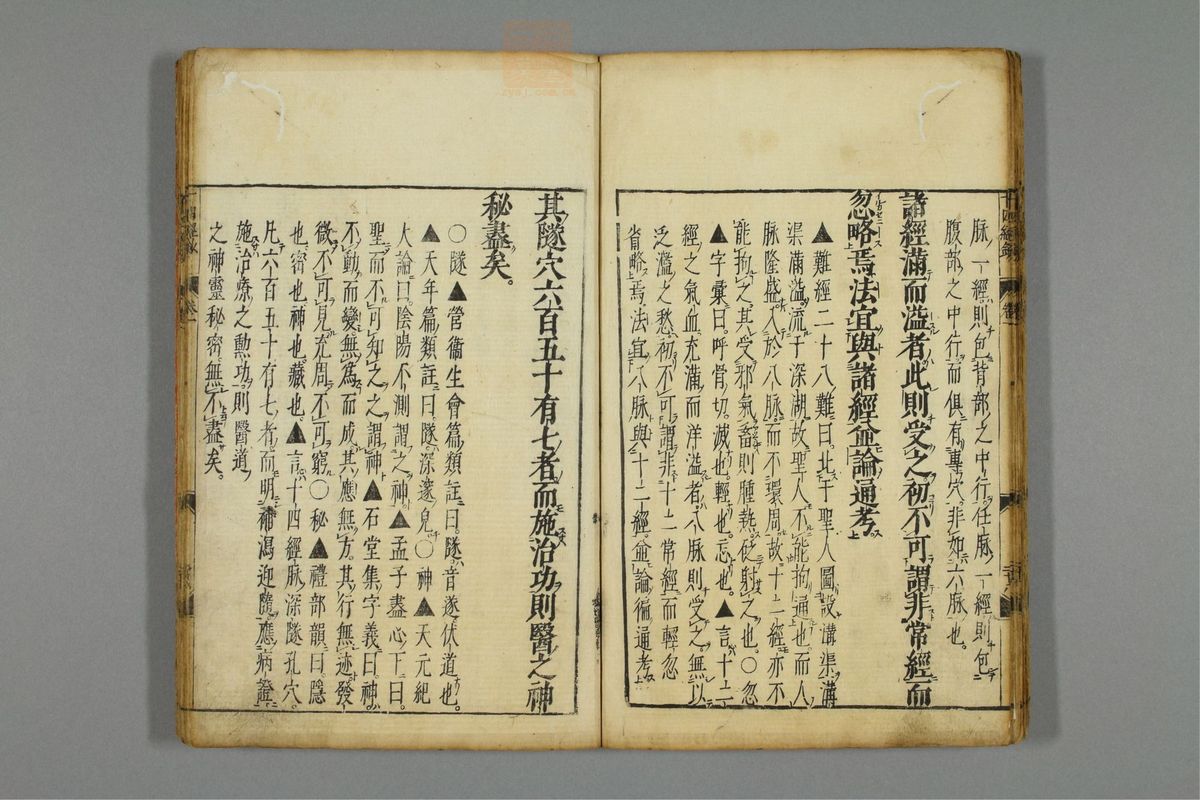 脉一經則包背部之中行任脉一經則包
腹部之中行而俱有專穴非如六脉也
諸經滿而溢者此則受之初不可謂非常經而
忽略焉法宜與諸經並論通考
▲難經二十八難曰北干聖人圖設溝渠溝
渠滿溢流于深湖故聖人不能拘通也而人
脉隆盛入於八脉而不環周故十二經亦不
能拘之其受邪氣畜則腫熱砭射之也○忽
▲字彙曰呼骨切滅也輕也忘也▲言十二
經之氣血充滿而洋溢者八脉則受之無以
乏濫之愁初不可謂非十二常經而輕忽
省略焉法宜八脉與十二經並論徧通考
其隧穴六百五十有七者而施治功則醫之神
秘盡矣
○隧▲營衞生會篇類註曰隧音遂伏道也
▲天年篇類註曰隧深邃皃○神▲天元紀
大論曰陰陽不測謂之神▲孟子盡心下曰
聖而不可知之之謂神▲石堂集字義曰神
不動而變無爲而成其應無方其行無迹發
微不可見充周不可窮○秘▲禮部韻曰隱
也密也神也藏也▲言十四經脉深隧孔穴
凡六百五十有七者而明補瀉迎隨應病證
施治療之勲功則醫道
之神靈秘密無不盡矣